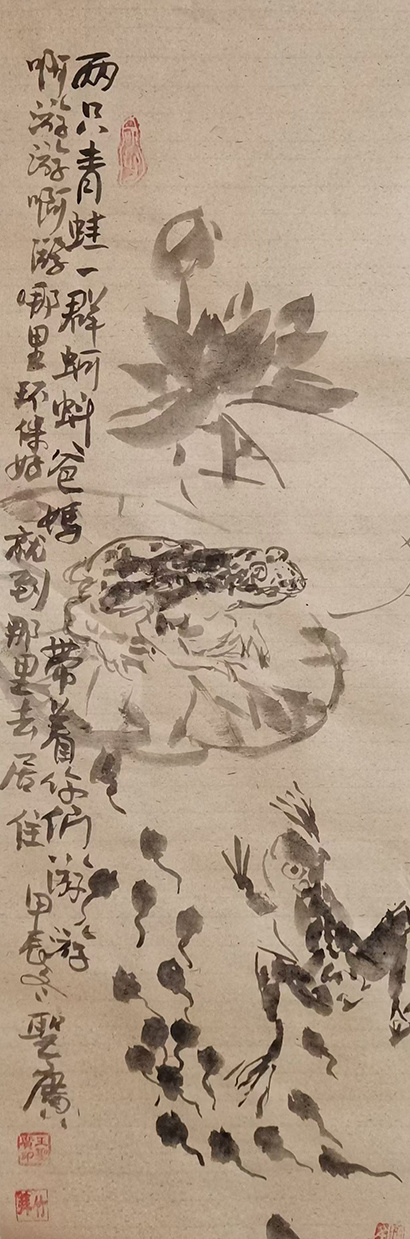 两只青蛙一群蚵蚪爸媽带着你们游游
啊游游啊游哪里环保好就到那里去居住
甲辰冬